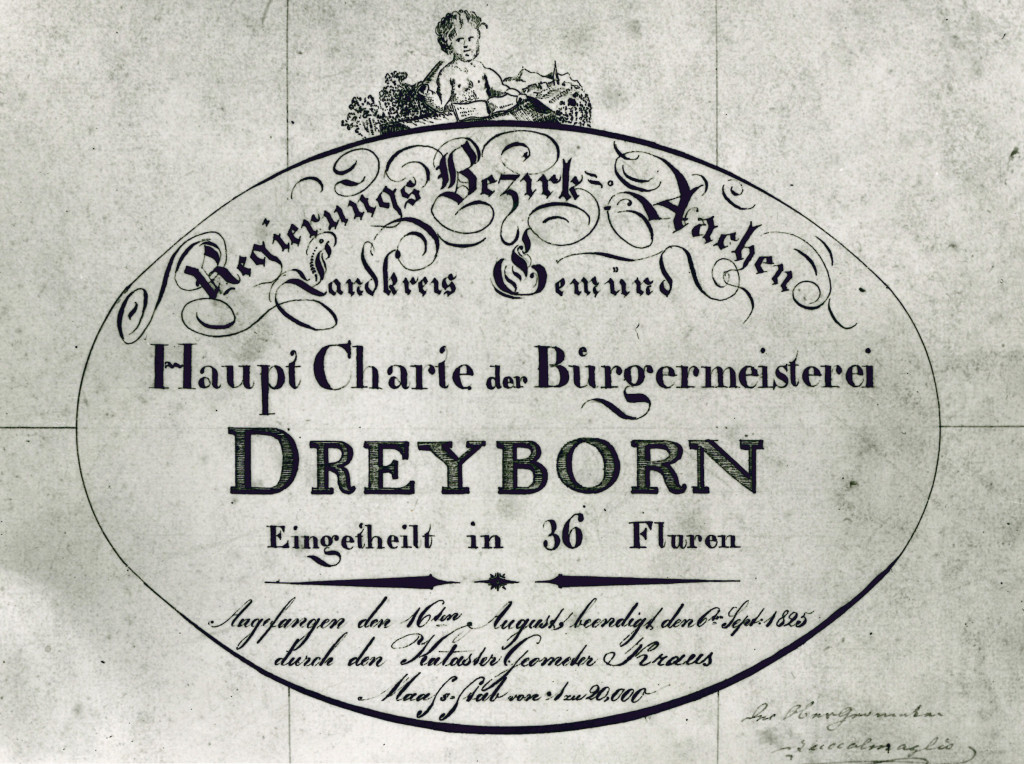 Regierungs Bezirk: Aachen
Landkreis Gemünd
Haupt Charte der Bürgermeisterei
DREYBORN
Eingetheilt in 36 Fluren
Angefangen den 16ten August beendigt den 6ten Sept: 1825
durch den Kataster Geometer Kraus
Maass-stab von 1 zu 20.000
Der Ober Geometer
Zuccalmaglio